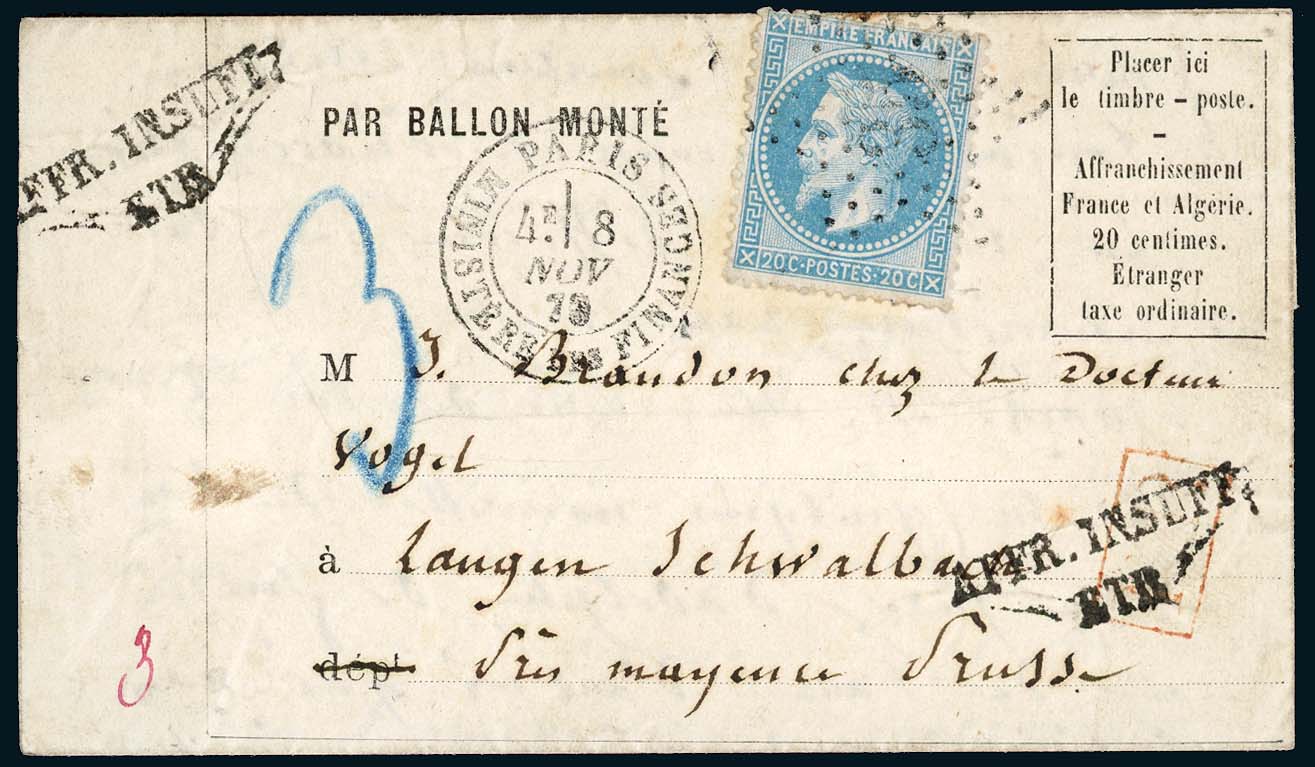 AFFR. INSUFF.
ETR
PAR BALLON MONTÉ
PARIS MINISTÈRE DES FINANCES
4E 8
NOV
70
EMPIRE FRANÇAIS
20C·POSTES·20C
Placer ici
le timbre-poste.
Affranchissement
France et Algérie.
20 centimes.
Étranger
taxe ordinaire.
3
M J. Brandon chez le Docteur
Vogel
à Langen Schwalbach
dépt Près mayence Prusse
AFFR. INSUFF.
ETR
3